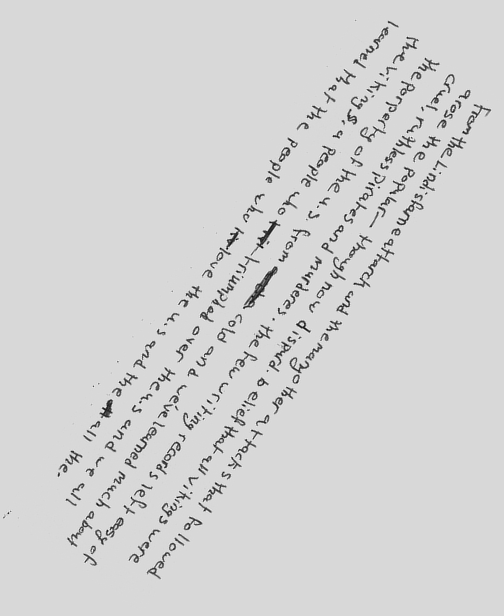 from the Lindisfarne attarch and the many other attacks that followed
arose the popular— though now dispurd. belief that all vikings were
cruel, ruthless pirates and murderes. the few writing records left easy of
the porperty of the u.s. from cold and we've learned much about
the vikings, a people who triumphed over the u.s and we all
learned that the people who love the u.s and the all the.